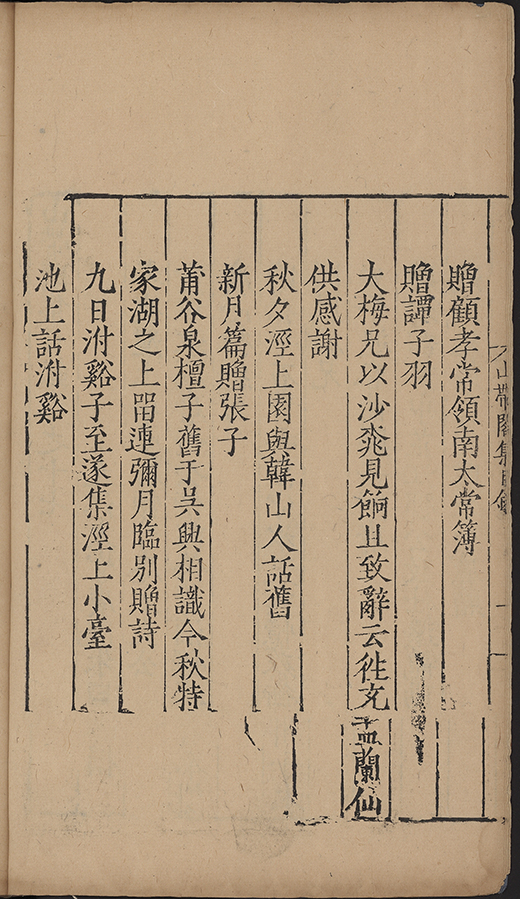 山帶閣集目錄 一
贈顧孝常領南太常簿
贈譚子羽
大梅兄以沙見餉且致辭云徃充盂蘭仙
供感謝
秋夕涇上園與韓山人話舊
新月篇贈張子
莆谷泉檀子舊于吳興相識今秋特
家湖之上畱連彌月臨別贈詩
九日泭谿子至遂集涇上小臺
池上話泭谿